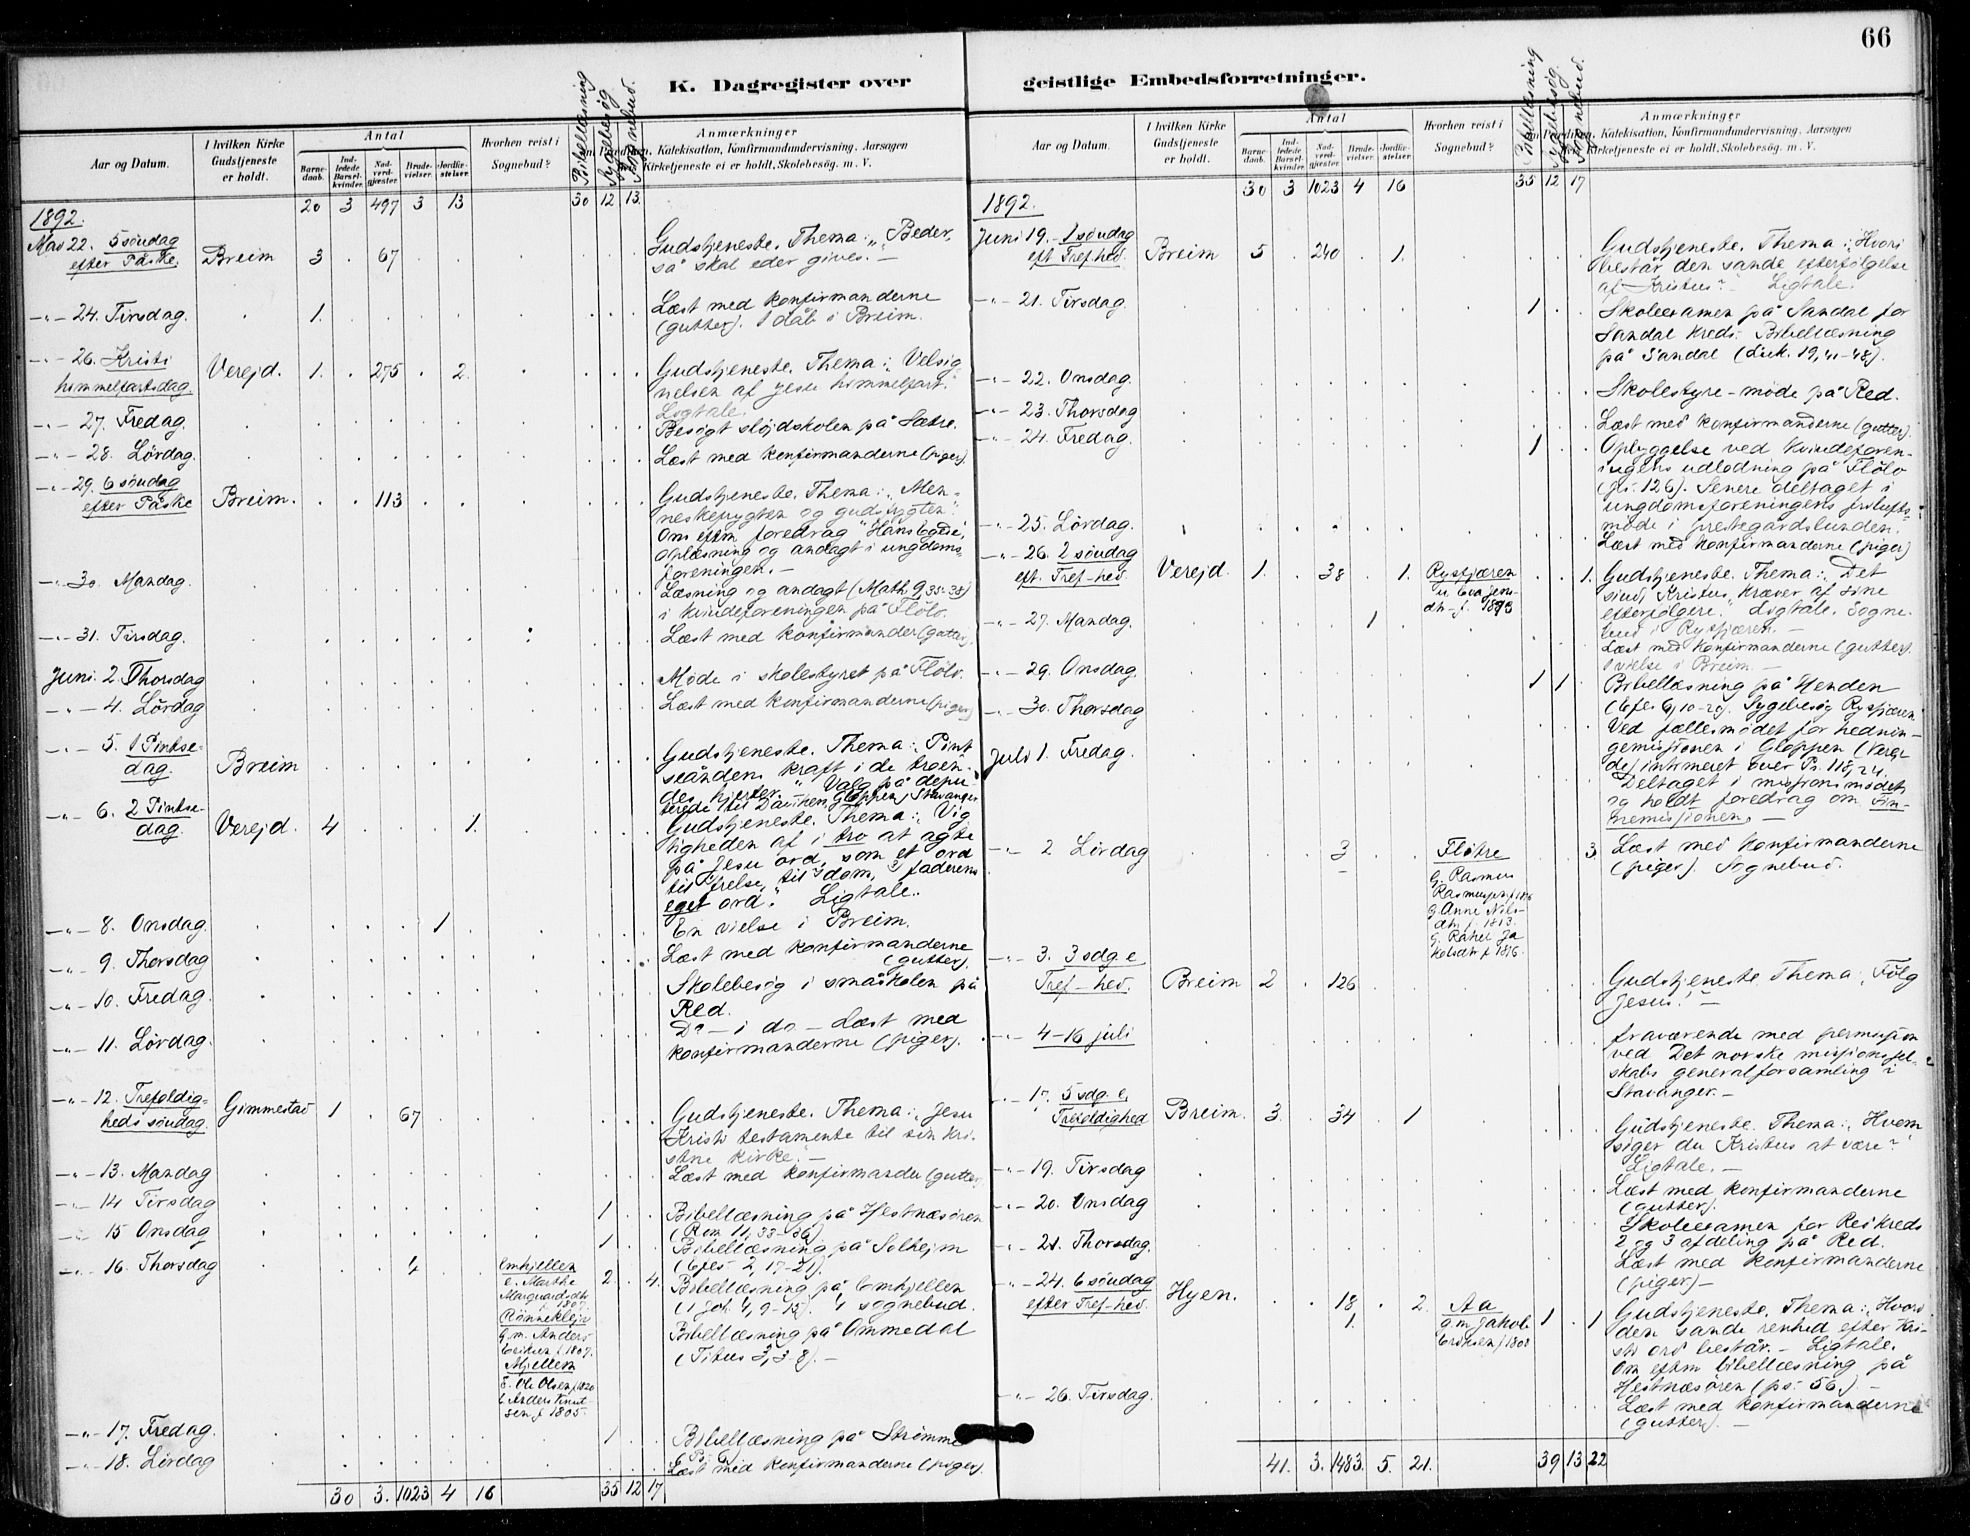 66
K. Dagregister over
geistlige Embedsforretninger.
Aar og Datum.
I hvilken Kirke Gudstjeneste er holdt.
Antal
Barnedaab.
Indledede Barselkvinder.
Nadverdgjæster
Brudevielser.
Jordfæstelser.
Hvorhen reist i Sognebud?
Bibellæsning
Sygebesög
Sognebud.
Anmærkninger
Katekisation, Konfirmandundervisning, Aarsagen
Kirketjeneste ei er holdt, Skolebesög. m. V.
20 3 497 3 13 30 12 13
1892.
Mai 22. 5 söndag efter Påske. Breim 3 . 67 Gudstjeneste. Thema: "Beder,
så skal eder gives. —
-"- 24. Tirsdag. 1. Læst med konfirmanderne
(gutter). 1 dåb i Breim.
-"- 26. Kristi himmelfartsdag. Verejd. 1. . 275 . 2. Gudstjeneste. Thema: Velsig
nelsen af Jesu himmelfart.
Ligtale.
-"- 27. Fredag. Besögt slöjdskolen på Sætre.
-"- 28. Lørdag. Læst med konfirmanderne (piger).
-"- 29. 6 söndag efter Påske Breim. . . 113 Gudstjeneste. Thema: "Men-
neskefrygten og gudsfrygten".
Om eftm. foredrag "Hans Egede",
oplæsning og andagt i ungdoms-
foreningen. —
-"- 30. Mandag. Læsning og andagt (Math 9, 35-38)
i kvindeforeningen på Flölo.
-"- 31. Tirsdag. Læst med konfirmander (gutter).
Juni. 2. Thorsdag Møde i skolestyret på Flölo.
-"- 4. Lördag Læst med konfirmanderne (piger)
-"- 5. 1 Pintsedag. Breim Gudstjeneste. Thema: Pint
seåndens kraft i de troen-
des hjerter." Valg på depu
terede til
-"- 6. 2 Pintsedag. Verejd. 4 1. Gudstjeneste. Thema: Vig
tigheden af i tro at agte
på Jesu ord, som et ord
til frelse, til dom, faderens
eget ord." Ligtale.
-"- 8. Onsdag. 1 En vielse i Breim.
-"- 9. Thorsdag Læst med konfirmanderne
(gutter).
-"- 10. Fredag. Skolebesög i småskolen på
Red.
-"- 11. Lørdag. Do — i do — Læst med
konfirmanderne (piger).
-"- 12. Trefoldigheds söndag. Gimmestad 1 . 67 Gudstjeneste. Thema: Jesu
Kristi testamente til sin kri-
stne kirke." —
-"- 13. Mandag Læst med konfirmander (gutter)
-"- 14 Tirsdag 1 Bibellæsning på Hestnæsören
(Rom 11, 33-36).
-"- 15 Onsdag 1 Bibellæsning på Solheim
(Efes 2, 17-21).
-"- 16. Thorsdag 4 Emhjellen
e. Marthe
f. 1807.
Rønnekleiv
g.m. Anders
Eriksen f 1807.
Mjellem
E. Ole Olsen f 1820
E Anders Knut-
sen f 1805. 2. . 4. Bibellæsning på Emhjellen
(1 Joh. 4, 9-15). 4 sognebud.
Bibellæsning på Ommedal
(Titus 3, 3-8). —
-"- 17. Fredag. 1 Bibellæsning på Strømme
-"- 18. Lördag Læst med konfirmanderne (piger).
30 3. 1023 4 16 35 12 17
Aar og Datum.
I hvilken Kirke Gudstjeneste er holdt.
Antal
Barnedaab.
Indledede Barselkvinder.
Nadverdgjæster
Brudevielser.
Jordfæstelser.
Hvorhen reist i Sognebud?
Bibellæsning
Sygebesög.
Sognebud.
Anmærkninger
Katekisation, Konfirmandundervisning, Aarsagen
Kirketjeneste ei er holdt, Skolebesög. m. V.
30 3 1023 4 16 35 12 17
1892.
Juni 19. 1 söndag eft Tref.hed. Breim 5 . 240 . 1. Gudstjeneste. Thema: Hvori
består den sande efterfölgelse
af Kristus? Ligtale.
-"- 21. Tirsdag. 1 Skoleexamen på Sandal for
Sandal kreds. Bibellæsning
på Sandal (Luk. 19, 41-48).
-"- 22. Onsdag. Skolestyre-møde på Red.
-"- 23. Thorsdag Læst med konfirmanderne (gutter).
-"- 24. Fredag. 1 Opbyggelse ved kvindeforen-
ingens udlodning på Flölo
(ps. 126). Senere deltaget i
ungdomsforeningens frilufts-
møde i prestegårdslunden.
-"- 25. Lördag. Læst med konfirmanderne (piger)
-"- 26. 2 söndag eft. Tref-hed. Verejd. 1. . 38 . 1. Rysfjæren
. . 1. Gudstjeneste. Thema: "Det
sind, Kristus kræver af sine
efterfölgere." Ligtale. Sogne-
bud i Rysfjæren. —
-"- 27. Mandag. 1 Læst med konfirmanderne (gutter).
1 vielse i Breim. —
-"- 29. Onsdag. 1 1 Bibellæsning på Henden
(Efes 6, 10-20). Sygebesög Rysfjæren
-"- 30. Thorsdag Ved fællesmødet for hednin-
gemissionen i Gloppen (Verej-
de) intimeret over Ps. 118, 24.
Juli 1. Fredag. Deltaget i missionsmødet
og holdt foredrag om Fin-
nemissionen. —
-"- 2 Lördag 3 Fløtre
G. Rasmus
Rasmussen f 1816
g. Anne Nils-
dtr f. 1813.
g. Rakel Ja
kobsdtr f 1816. 3. Læst med konfirmanderne
(piger). Sognebud.
-"- 3. 3 sdg e. Tref-hed. Breim 2 . 126 Gudstjeneste. Thema: "Fölg
Jesus!" —
-"- 4-16 juli fraværende med permission
ved Det norske missionssel-
skabs generalforsamling i
Stavanger. —
17. 5 sdg. e. Trefoldighed Breim. 3. . 34 . 1 Gudstjeneste. Thema: "Hvem
siger du Kristus at være?"
Ligtale. —
-"- 19. Tirsdag Læst med konfirmanderne
(gutter).
-"- 20. Onsdag Skoleexamen for Red kreds
2 og 3 afdeling på Red.
-"- 21. Thorsdag. Læst med konfirmanderne
(piger) —
-"- 24. 6 söndag efter Tref-hed. Hyen. . . 18 . 2.
1. Aa
g.m. Jakob
Eriksen f 1808 1 . 1 Gudstjeneste. Thema: Hvori
den sande renhed efter Kri-
sti ord består. — Ligtale.
Om eftm bibellæsning på
Hestnæsören (ps. 56.) —
-"- 26. Tirsdag. Læst med konfirmanderne
(gutter). —
41. 3. 1483. 5. 21. 39 13 22